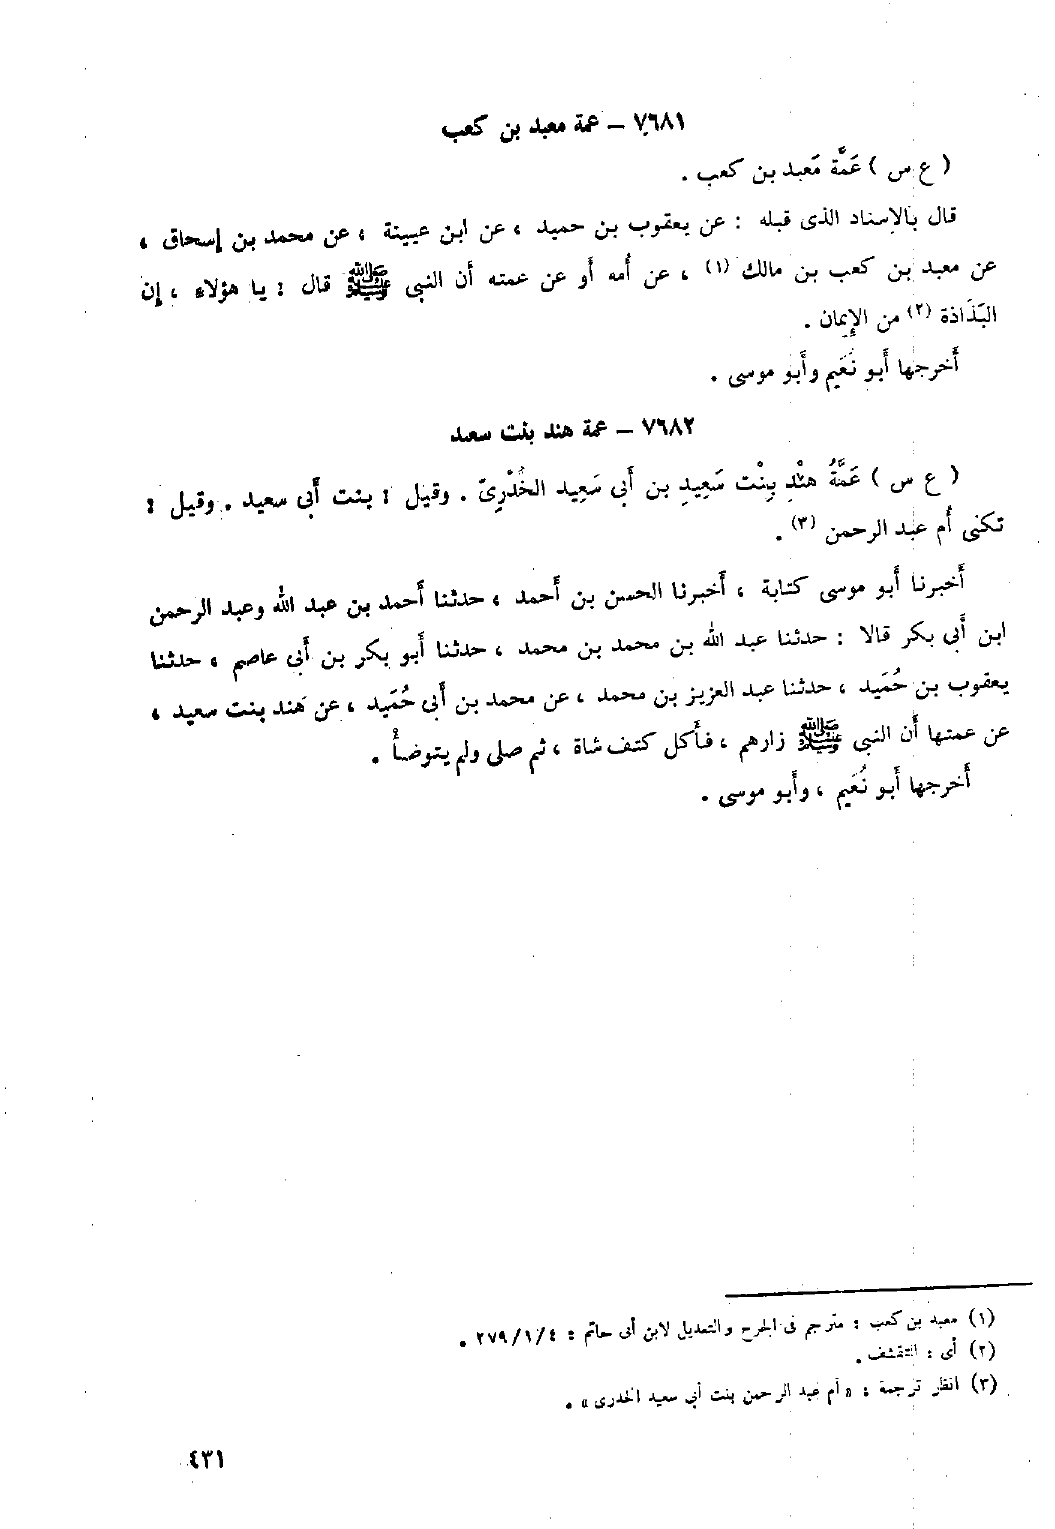 ٧٦٨١ – عمة معبد بن كعب
( ع س ) عَمَّة مَعبد بن كعب .
قال بالإسناد الذى قبله : عن يعقوب بن حميد ، عن ابن عيينة ، عن محمد بن إسحاق ،
عن معبد بن كعب بن مالك (١) ، عن أُمه أو عن عمته أن النبى ﷺ قال : يا هؤلاء ، إن
البَذَاذة (٢) من الإيمان .
أَخرجها أَبو نُعَيم وأَبو موسى .
٧٦٨٢ – عمة هند بنت سعيد
( ع س ) عَمَّةُ هنْدِ بِنْت سَعِيدِ بن أَبى سَعِيد الخُدْرِىّ . وقيل : بنت أَبى سعيد . وقيل :
تكنى أُم عبد الرحمن (٣) .
أَخبرنا أَبو موسى كتابة ، أَخبرنا الحسن بن أَحمد ، حدثنا أَحمد بن عبد الله وعبد الرحمن
ابن أَبى بكر قالا : حدثنا عبد الله بن محمد بن محمد ، حدثنا أَبو بكر بن أَبى عاصم ، حدثنا
يعقوب بن حُمَيد ، حدثنا عبد العزيز بن محمد ، عن محمد بن أَبى حُمَيد ، عن هَند بنت سعيد ،
عن عمتها أَن النبى ﷺ زارهم ، فأَكل كتف شاة ، ثم صلى ولم يتوضأْ .
أَخرجها أَبو نُعَيم ، وأَبو موسى .
(١) معبد بن كعب : مترجم فى الجرح والتعديل لابن أبى حاتم : ٢٧٩/١/٤ .
(٢) أى : التقشف .
(٣) انظر ترجمة : « أم عبد الرحمن بنت أبى سعيد الخدرى » .
٤٣١